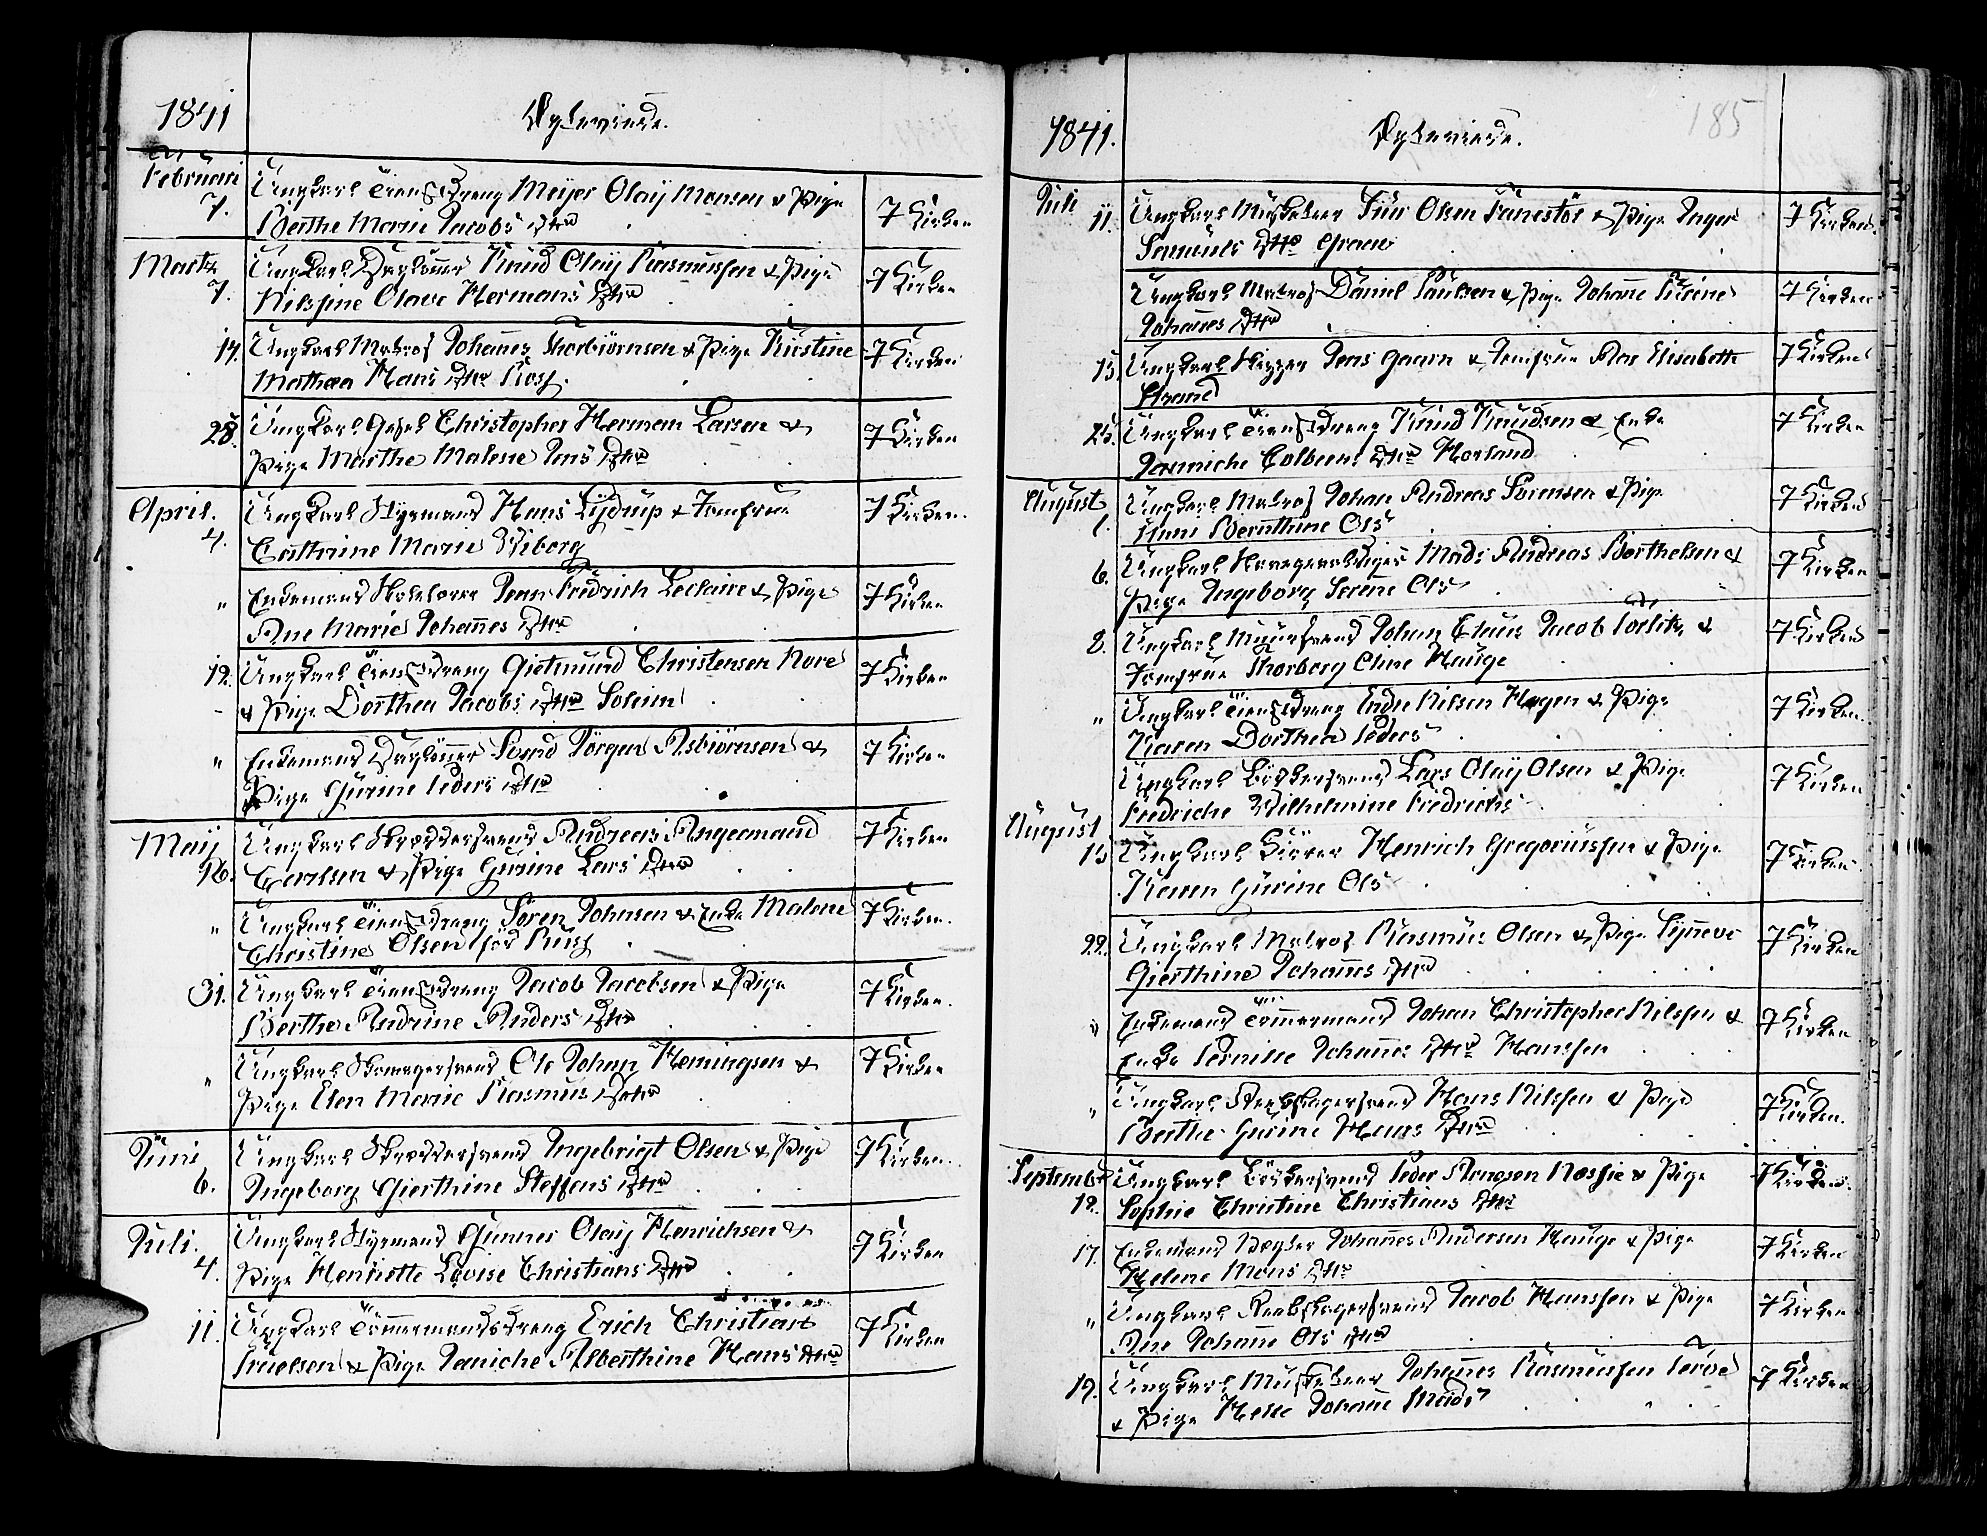 1841
Ægteviede.
Februari
7. Ungkarl Tienstdreng Meyer Olaij Monsen & Pige
Berthe Marie Jacobs Dtr
I Kirken
Martz
7. Ungkarl Dagløner Knud Olaij Rasmussen & Pige
Nilssine Olave Hermans Dtr
I Kirken
14. Ungkarl Matros Johannes Thorbiørnsen & Pige Kirstine
Mathea Hans Dtr Ross.
I Kirken
28. Ungkarl Gesel Christopher Herman Larsen &
Pige Marthe Malene Jens Dtr
I Kirken
April.
4. Ungkarl Styrmand Hans Lydrup & Jomfrue
Cathrine Marie Wiborg
I Kirken.
" Enkemand Skolelærer Jean Fredrich Leclaire & Pige
Ane Marie Johannes Dtr
I Kirken
12. Ungkarl Tienstdreng Gietmund Christensen Hove
& Pige Dorthea Jacobs Dtr Soleim
I Kirken
" Enkemand Dagløner Svend Jørgen Asbiørnsen &
Pige Gurine Peders Dtr
I Kirken
Maij
16. Ungkarl Skræddersvend Andreas Angermand
Carlsen & Pige Gurine Lars Dtr
I Kirken
" Ungkarl Tienstdreng Søren Johnsen & Enke Malene
Christine Olsen fød Russ
I Kirken.
31. Ungkarl Tienstdreng Jacob Jacobsen & Pige
Berthe Andrine Anders Dtr
I Kirken.
" Ungkarl Skomagersvend Ole Johan Hemingsen &
Pige Elen Marie Rasmus Dotr
I Kirken
Juni
6. Ungkarl Skræddersvend Ingebrigt Olsen & Pige
Ingeborg Gierthine Steffens Dtr
I Kirken.
Juli.
4. Ungkarl Styrmand Gunner Olaij Henrichsen &
Pige Henriette Lovise Christians Dtr
I Kirken
11. Ungkarl Tømmermandsdreng Erich Christian
Truelsen & Pige Janiche Alberthine Hans Dtr
I Kirken
185
1841.
Ægteviede.
Juli
11. Ungkarl Musketeer Siur Olsen & Pige Inger
Samuels Dtr Graae
I Kirken.
Ungkarl Matros Daniel Paulsen & Pige Johanne Sirine
Johannes Dtr
I Kirken
15. Ungkarl Skipper Jens Gaarn & Jomfrue Aas Elisabeth
Strand
I Kirken
25. Ungkarl Tienstdreng Knud Knudsen & Enke
Jasmiche Colbeens Dtr Horland
I Kirken
August
1. Ungkarl Matros Johan Andreas Sørensen & Pige
Anne Bernthine Ols
I Kirken
6. Ungkarl Mads Andreas Barthelsen &
Pige Ingeborg Serene Ols
I Kirken
8. Ungkarl Muursvend Johan Claus Jacob &
Jomfrue Thorborg Oline Hauge
I Kirken
" Ungkarl Tienstdreng Endre Nilsen Hagen & Pige
Karen Dorthea Peders
I Kirken.
Ungkarl Bødkersvend Lars Olaij Olsen & Pige
Fredriche Wilhelmine Fredrichs
I Kirken
August
15 Ungkarl Kiører Henrich Gregoriussen & Pige
Karen Gurine Ols
I Kirken.
22. Ungkarl Matros Rasmus Olsen & Pige Synneve
Gierthine Johannes Dtr
I Kirken
" Enkemand Tømmermand Johan Christopher Nilssen &
Enke Pernille Johannes Dtr Hanssen
I Kirken
" Ungkarl Reebslagersvend Hans Nilssen & Pige
Berthe Gurine Hans Dtr
I Kirken.
September
12. Ungkarl Bødkersvend Peder Arnesen Nessie & Pige
Sophie Christine Christians Dtr
I Kirken.
17. Enkemand Vægter Johannes Andersen Hauge & Pige
Helene Mons Dtr
I Kirken
" Ungkarl Reebslagersvend Jacob Hanssen & Pige
Ane Johanne Ols Dtr
I Kirken
19. Ungkarl Musketeer Johannes Rasmussen
& Pige Helle Johanne Mads
I Kirken